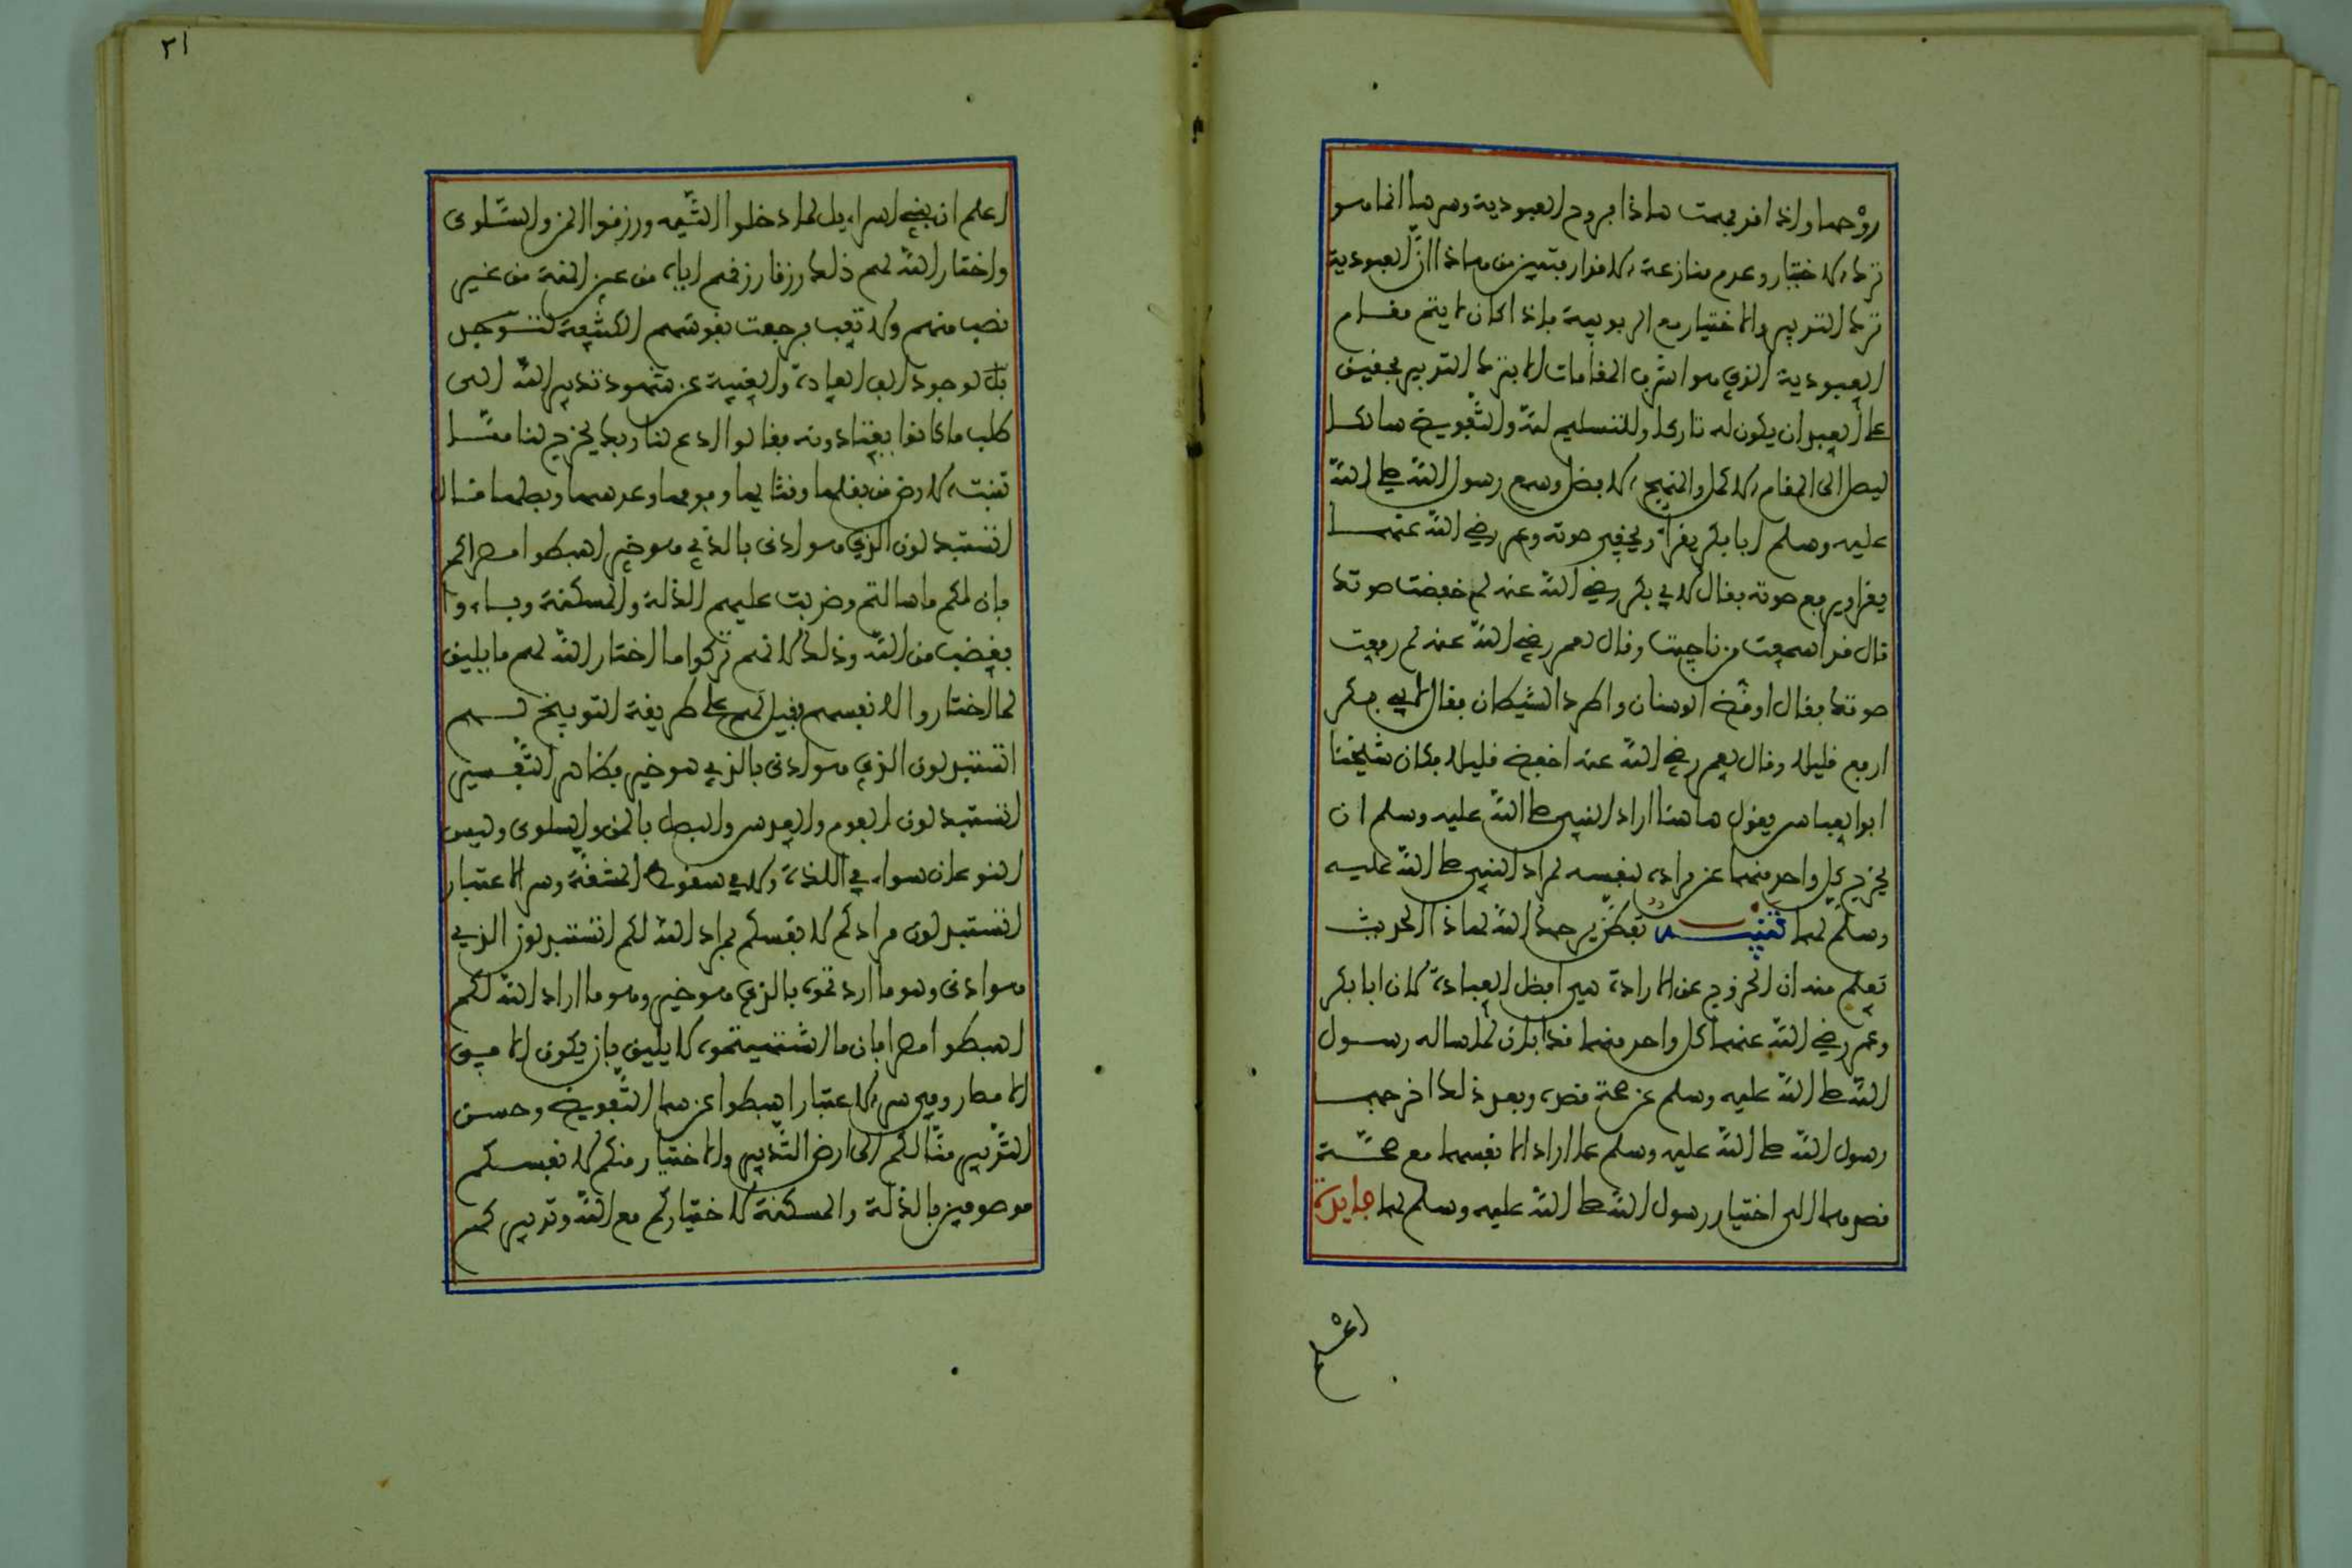 روحها واذا قد فهمت هاذا فروح العبودية وسرها انما هو
ترك الاختيار وعدم منازعة الاقدار فتبين من هاذا ان العبودية
ترك التدبير والاختيار مع الربوبية فاذا كان لا يتم مقام
العبودية الذي هو اشرف المقامات الا بترك التدبير فحقيق
على العبد ان يكون له تاركا وللتسليم لله والتفويض سالكا
ليصل الى المقام الاكمل والمنهج الافضل وسمع رسول الله صلى الله
عليه وسلم ابا بكر يقرأ ويخفي صوته وعمر رضي الله عنهما
يقرا ويرفع صوته فقال لابي بكر رضي الله عنه لم خفضت صوتك
قال قد اسمعت من ناجيت وقال لعمر رضي الله عنه لم رفعت
صوتك فقال اوقظ الوسنان واطرد الشيطان فقال لابي بكر
ارفع قليلا وقال لعمر رضي الله عنه اخفض قليلا فكان شيخنا
ابو العباس يقول هاهنا اراد النبي صلى الله عليه وسلم ان
يخرج كل واحد منهما عن مراده لنفسه لمراد النبي صلى الله عليه
وسلم لهما تنبيه تفطن يرحمك الله لهاذا الحديث
تعلم منه ان الخروج عن الارادة هي افضل العبادة لان ابا بكر
وعمر رضي الله عنهما كل واحد منهما قد ابان لما ساله رسول
الله صلى الله عليه وسلم عن صحة قصده وبعد ذلك اخرجهما
رسول الله صلى الله عليه وسلم عما ارادا لانفسهما مع صحة
قصدهما الى اختيار رسول الله صلى الله عليه وسلم لهما فايدة
اعلم
٢١
اعلم ان بني اسراءيل لما دخلوا التيه ورزقوا المن والسلوى
واختار الله لهم ذلك رزقا رزقهم اياه من عين المنة من غير
نصب منهم ولا تعب فرجعت نفوسهم الكثيفة
لوجود الف العادة والغيبة عن شهود تدبير الله الى
طلب ما كانوا يعتادونه فقالوا ادع لنا ربك يخرج لنا مما
تنبت الارض من بقلها وقثايها وفومها وعدسها وبصلها قال
اتستبدلون الذي هو ادنى بالذي هو خير اهبطوا مصرا
فان لكم ما سالتم وضربت عليهم الذلة والمسكنة وباءوا
بغضب من الله وذلك لانهم تركوا ما اختار الله لهم مما يليق
لما اختاروا لانفسهم فقيل لهم على طريقة التوبيخ لهم
اتستبدلون الذي هو ادنى بالذي هو خير فظاهر التفسير
اتستبدلون الفوم والعدس والبصل بالمن والسلوى وليس
النوعان سواء في اللذة ولا في سقوط المشقة وسر الاعتبار
اتستبدلون مرادكم لانفسكم بمراد الله لكم اتستبدلون الذي
هو ادنى وهو ما اردتموه بالذي هو خير وهو ما اراد الله لكم
اهبطوا مصرا فان ما اشتهيتموه لا يليق بان يكون الا في
الامصار وفي سر الاعتبار اهبطوا عن سما التفويض وحسن
التدبير منا لكم الى ارض التدبير والاختيار منكم لانفسكم
موصوفين بالذلة والمسكنة لاختياركم مع الله وتدبيركم